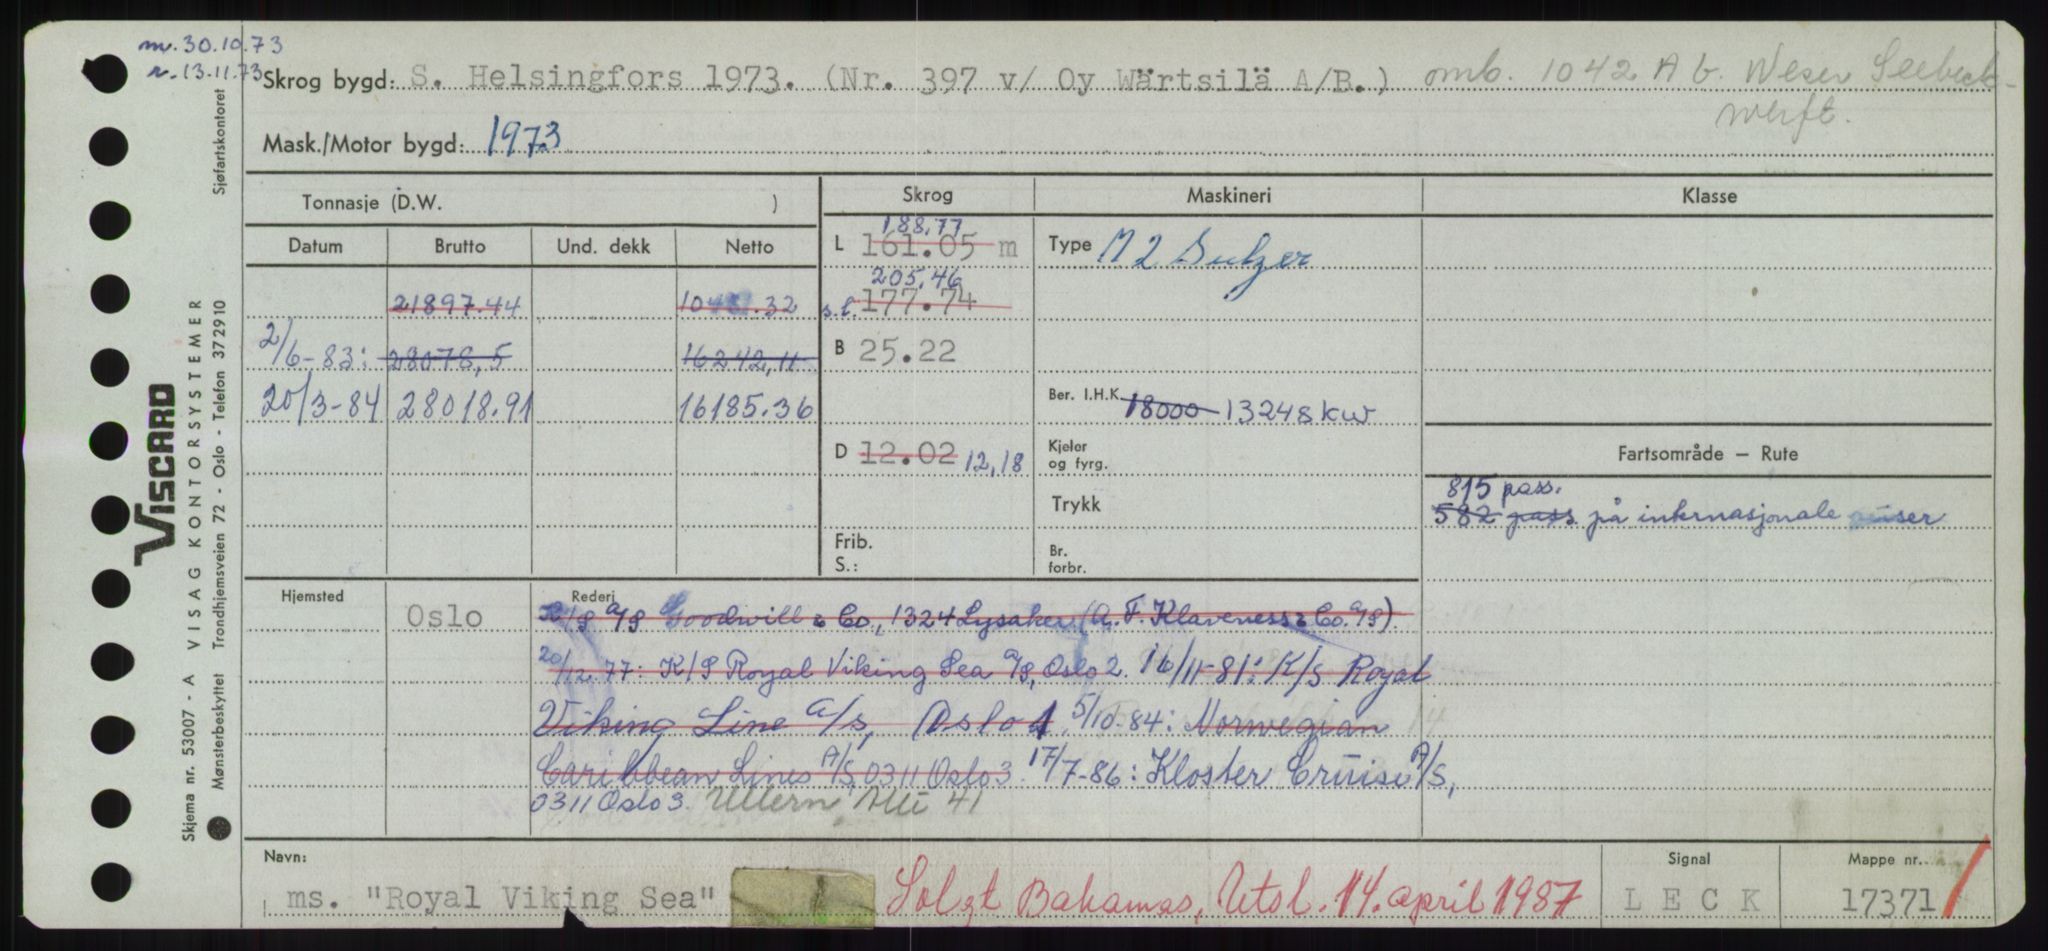 m. 30.10.73
r. 13.11.73
Skrog bygd: S. Helsingfors 1973. (Nr. 397 v/ Oy Wärtsilä A/B.) omb. 1042 A G. Weser Seebeck-
werft.
Mask./Motor bygd: 1973
Tonnasje (D.W. ) Skrog Maskineri Klasse
Datum Brutto Und. dekk Netto
188,77
L 161.05 m Type M 2 Sulzer
205,46
21897.44 .32 s.l. 177.74
2/6-83: 28078,5 16242,11 B 25.22
20/3-84 28018.91 16185.36 Ber. I.H.K. 18000 13248 kw
D 12.02 12,18 Kjeler
og fyrg.
Fartsområde — Rute
Trykk 815 pass.
582 pass. på internasjonale
Frib.
S.:
Br.
forbr.
Hjemsted Oslo Rederi
K/S A/S Goodwill & Co., 1324 Lysaker (A. F. Klaveness & Co. A/S).
20/12.77: K/S Royal Viking Sea A/S, Oslo 2. 16/11-81: K/S Royal
Viking Line A/S, Oslo 1. 5/10-84: Norwegian
Caribbean Lines A/S, 0311 Oslo 3. 17/7-86: Kloster Cruise A/S,
0311 Oslo 3. Ullern Alle 41
Navn: Signal Mappe nr.
ms. "Royal Viking Sea" Solgt Bahamas, Utsl. 14. april 1987 L E C K 17371
Sjøfartskontoret
VISCARD
VISAG KONTORSYSTEMER
Trondhjemsveien 72 - Oslo - Telefon 372910
Skjema nr. 53007 - A
Mønsterbeskyttet